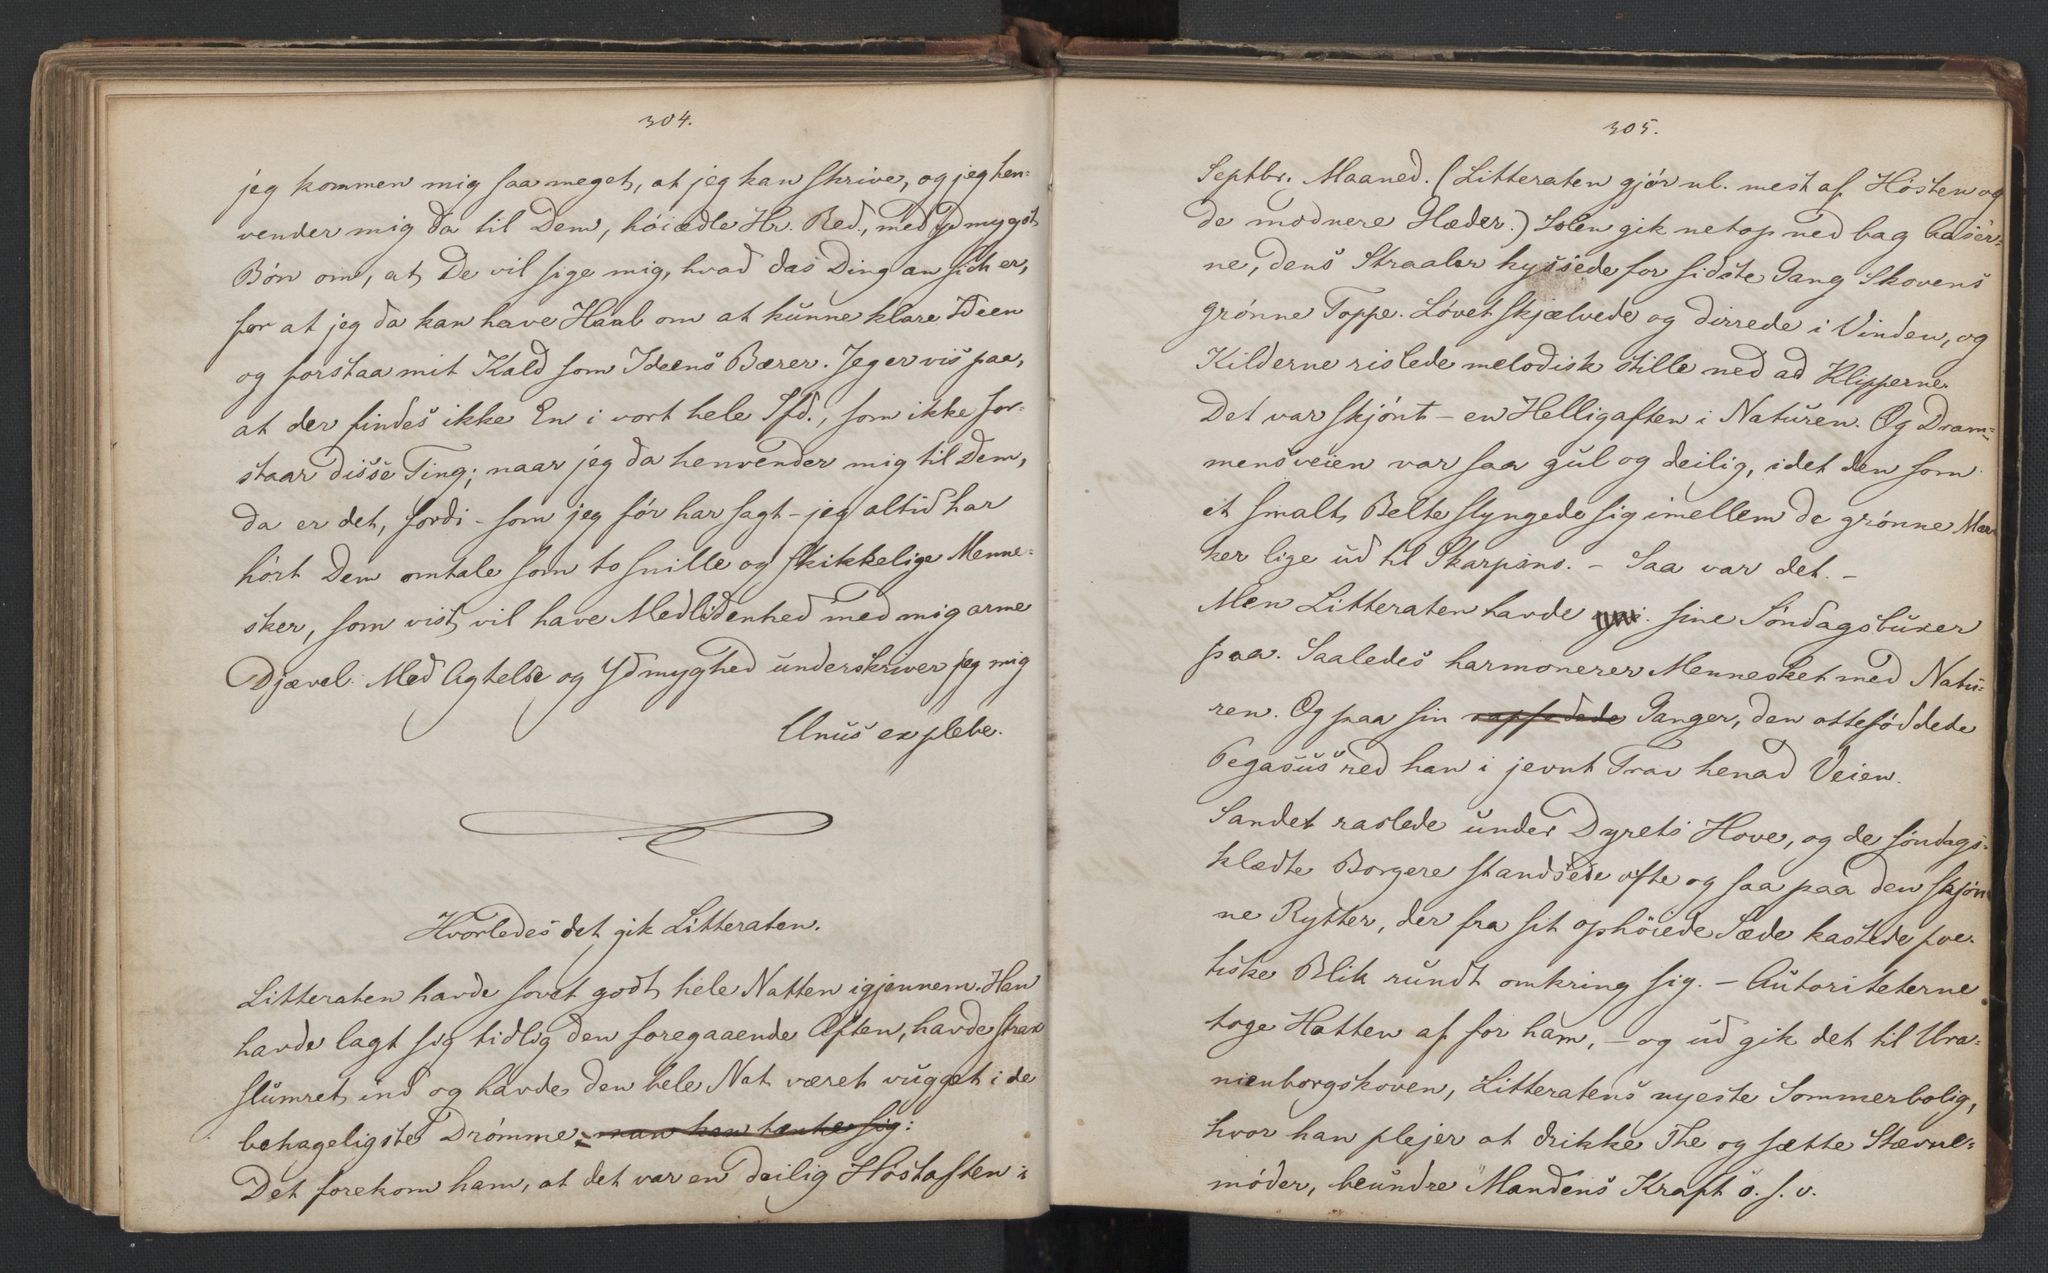 304.
jeg kommen mig saa meget, at jeg kan skrive, og jeg hen-
vender mig da til Dem, höiædle Hr. Red., med ydmygst
Bön om, at De vil sige mig, hvad das Ding an sich er,
for at jeg da kan have Haab om at kunne klare Ideen
og forstaa mit Kald som Ideens Bærer. Jeg er vis paa,
at der findes ikke En i vort hele Sfd., som ikke for-
staar disse Ting; naar jeg da henvender mig til Dem,
da er det, fordi - som jeg för har sagt - jeg altid har
hört Dem omtale som to snille og skikkelige Menne-
sker, som vist vil have Medlidenhed med mig arme
Djævel. Med Agtelse og Ydmyghed underskriver jeg mig
Unus ex plebe.
Hvorledes det gik Litteraten.
Litteraten havde sovet godt hele Natten igjennem. Han
havde lagt sig tidlig den foregaaende Aften, havde strax
slumret ind og havde den hele Nat været vugget i de
behageligste Drömme, man kan tænke sig:
Det forekom ham, at det var en deilig Höstaften i
305.
Septbr. Maaned. (Litteraten gjör nl. mest af Hösten og
de modnere Glæder.) Solen gik netop ned bag Aaser-
ne, dens Straaler kyssede for sidste Gang Skovens
grönne Toppe. Lövet skjælvede og dirrede i Vinden, og
Kilderne rislede melodisk stille ned ad Klipperne
Det var skjönt - en Helligaften i Naturen. Og Dram-
mensveien var saa gul og deilig, idet den som
et smalt Belte slyngede sig imellem de grönne Mar
ker lige ud til Skarpsno. - Saa var det. -
Men Litteraten havde sine Söndagsbuxer
paa. Saaledes harmonerer Mennesket med Natu-
ren. Og paa sin Ganger, den otteföddede
Pegasus red han i jevnt Trav henad Veien.
Sandet raslede under Dyrets Hove, og de söndags-
klædte Borgere standsede ofte og saa paa den skjön
ne Rytter, der fra sit ophöiede Sæde kastede poe-
tiske Blik rundt omkring sig. - Autoriteterne
toge Hatten af for ham, - og ud gik det til Ura-
nienborgskoven, Litteratens nyeste Sommerbolig,
hvor han plejer at drikke The og sætte Stævne-
möder, beundre Mandens Kraft o. s. v.